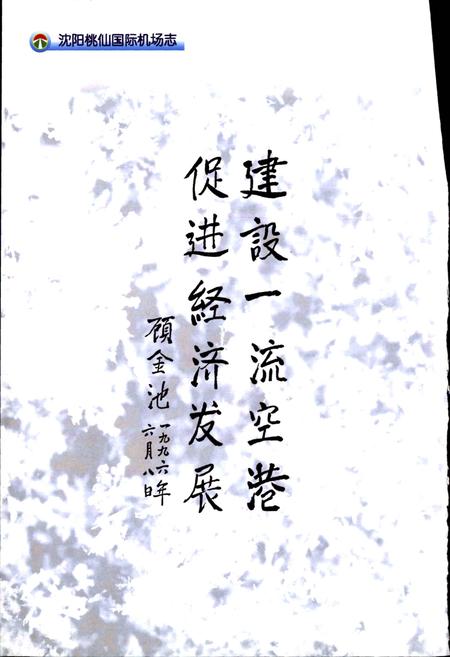 沈阳桃仙国际机场志
建設一流空港
促进経济发展
顾金池
一九九六年
六月八日